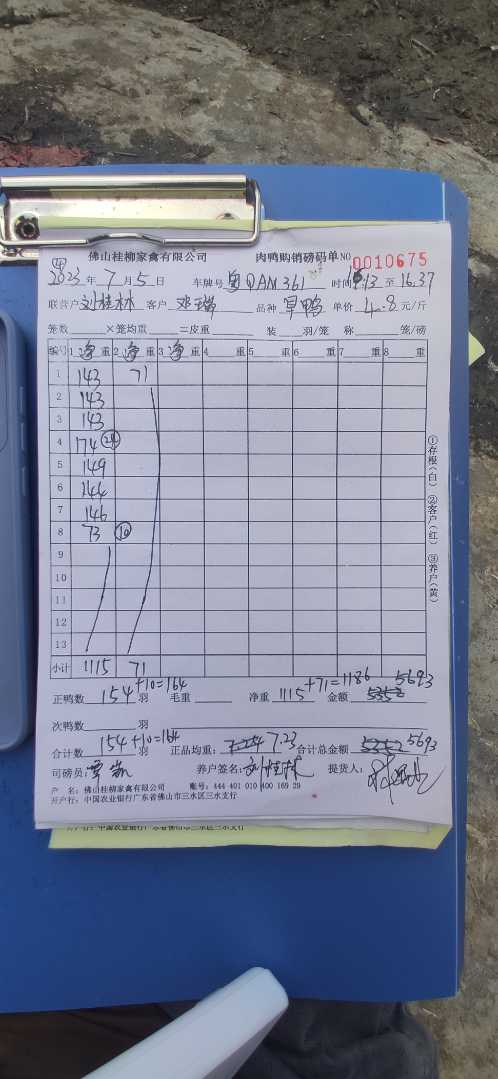 佛山桂柳家禽有限公司 肉鸭购销磅码单 NO 0010675
2023年7月5日 车牌号 粤QAM361 时间 16.13 至 16.37
联营户 刘桂林 客户 邓瑞 品种 旱鸭 单价 4.8 元/斤
笼数 ×笼均重 =皮重 装 羽/笼 称 笼/磅
编号 1 净 重 2 净 重 3 净 重 4 重 5 重 6 重 7 重 8 重
1 143 71
2 143
3 143
4 174 (24)
5 149
6 144
7 146
8 73 (10)
9
10
11
12
13
小计 1115 71
正鸭数 154+10=164 羽 毛重 净重 1115+71=1186 金额 5693
次鸭数 羽
合计数 154+10=164 羽 正品均重: 7.23 合计总金额 5693
司磅员: 养户签名: 刘桂林 提货人:
户 名: 佛山桂柳家禽有限公司 账号: 444 401 010 400 169 29
开户行: 中国农业银行广东省佛山市三水区三水支行
①存根(白) ②客户(红) ③养户(黄)
开户行: 中国农业银行广东省佛山市三水区三水支行